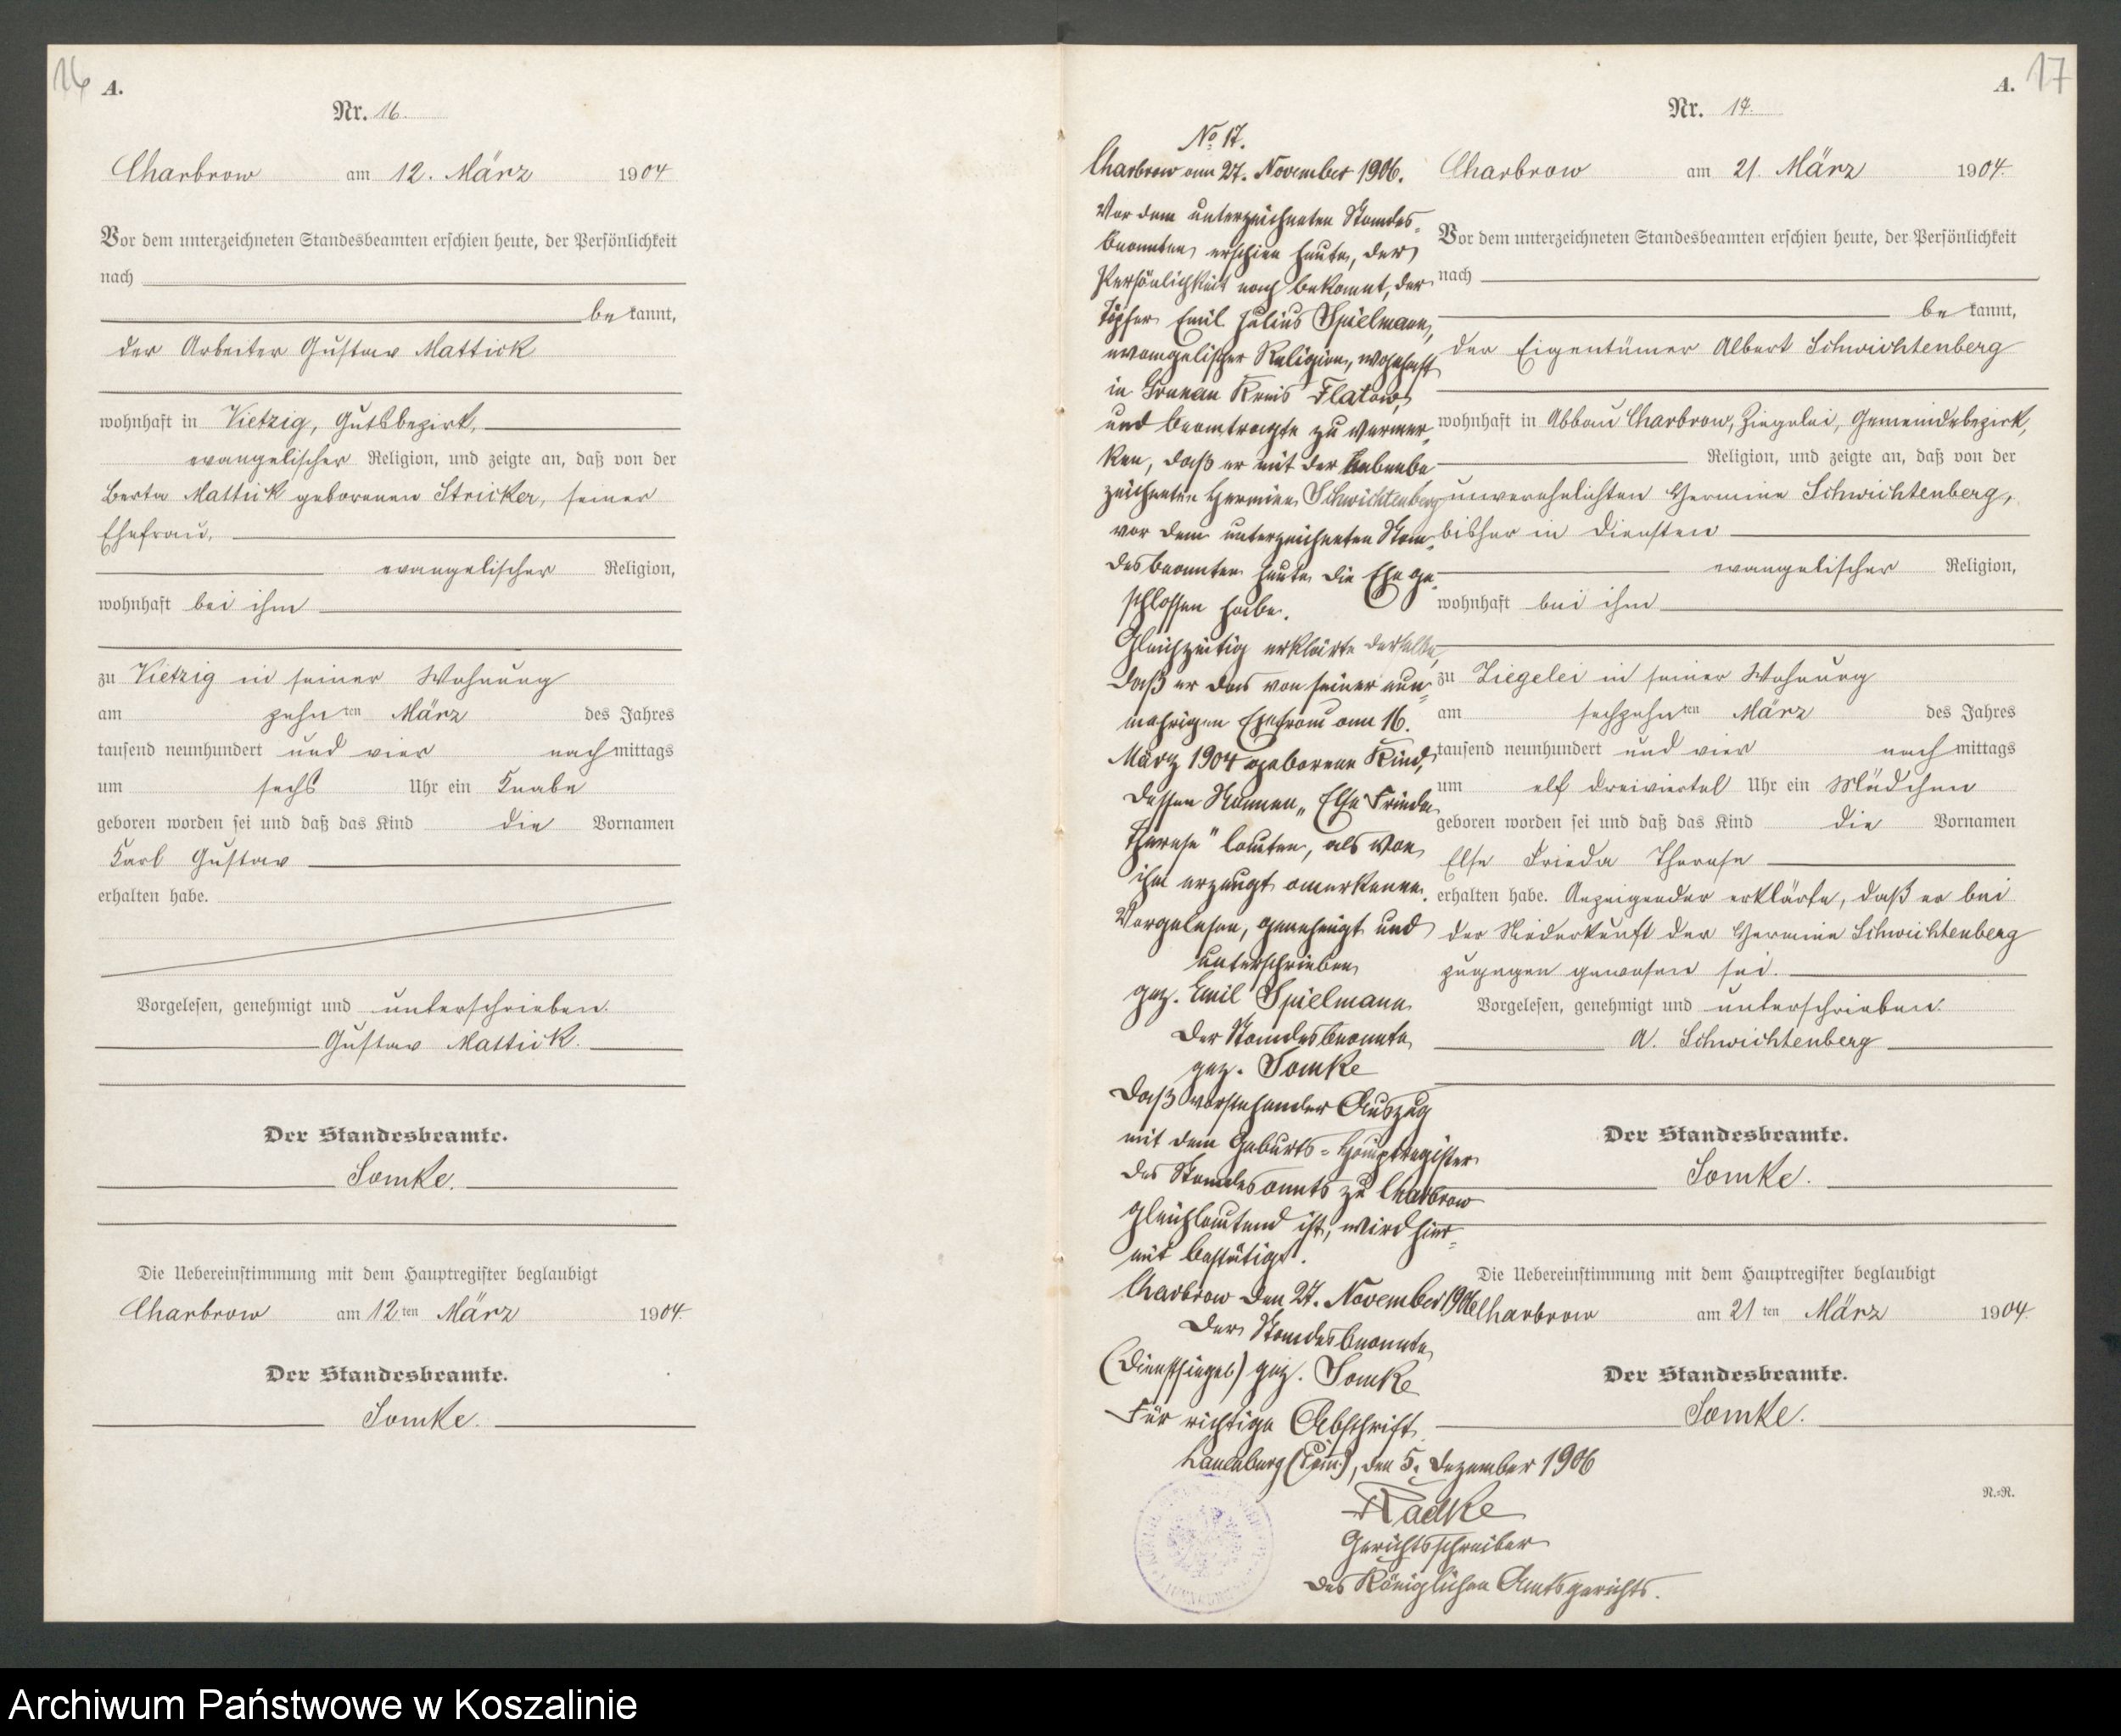 16
A.
Nr. 16.
Charbrow am 12. März 1904
Vor dem unterzeichneten Standesbeamten erschien heute, der Persönlichkeit
nach
bekannt,
der Arbeiter Gustav Mattick
wohnhaft in Vietzig, Gutsbezirk,
evangelischer Religion, und zeigte an, daß von der
Berta Mattick geborenen Stricker, seiner
Ehefrau,
evangelischer Religion,
wohnhaft bei ihm
zu Vietzig in seiner Wohnung
am zehnten März des Jahres
tausend neunhundert und vier nachmittags
um sechs Uhr ein Knabe
geboren worden sei und daß das Kind die Vornamen
Karl Gustav
erhalten habe.
Vorgelesen, genehmigt und unterschrieben.
Gustav Mattick.
Der Standesbeamte.
Somke.
Die Uebereinstimmung mit dem Hauptregister beglaubigt
Charbrow am 12ten März 1904.
Der Standesbeamte.
Somke.
No 17.
Charbrow am 27. November 1906.
Vor dem unterzeichneten Standes-
beamten erschien heute, der
Persönlichkeit nach bekannt, der
Töpfer Emil Julius Spielmann,
evangelischer Religion, wohnhaft
in Kreis Flatow,
und beantragte zu vermer-
ken, daß er mit der nebenbe
zeichneten Hermine Schwichtenberg
vor dem unterzeichneten Stan-
desbeamten heute die Ehe ge-
schlossen habe.
Gleichzeitig erklärte derselbe,
daß er das von seiner nun-
mehrigen Ehefrau am 16.
März 1904 geborene Kind,
dessen Namen „Else Frieda
Therese" lauten, als von
ihm erzeugt anerkenne.
Vorgelesen, genehmigt und
unterschrieben
gez. Emil Spielmann
Der Standesbeamte
gez. Somke
Daß vorstehender Auszug
mit dem Geburts-Hauptregister
des Standesamts zu Charbrow
gleichlautend ist, wird hier-
mit bestätigt.
Charbrow den 27. November 1906
Der Standesbeamte
(Dienstsiegel) gez. Somke
Für richtige Abschrift
Lauenburg (Pom.), den 5. Dezember 1906
Radke
Gerichtsschreiber
des Königlichen Amtsgerichts.
A.
17
Nr. 17.
Charbrow am 21. März 1904.
Vor dem unterzeichneten Standesbeamten erschien heute, der Persönlichkeit
nach
bekannt,
der Eigentümer Albert Schwichtenberg
wohnhaft in Abbau Charbrow, Ziegelei, Gemeindebezirk,
Religion, und zeigte an, daß von der
unverehelichten Hermine Schwichtenberg,
bisher in Diensten
evangelischer Religion,
wohnhaft bei ihm
zu Ziegelei in seiner Wohnung
am sechzehnten März des Jahres
tausend neunhundert und vier nachmittags
um elf dreiviertel Uhr ein Mädchen
geboren worden sei und daß das Kind die Vornamen
Else Frieda Therese
erhalten habe. Anzeigender erklärte, daß er bei
der Niederkunft der Hermine Schwichtenberg
zugegen gewesen sei.
Vorgelesen, genehmigt und unterschrieben.
A. Schwichtenberg
Der Standesbeamte.
Somke.
Die Uebereinstimmung mit dem Hauptregister beglaubigt
Charbrow am 21ten März 1904.
Der Standesbeamte.
Somke.
R.-R.
Archiwum Państwowe w Koszalinie